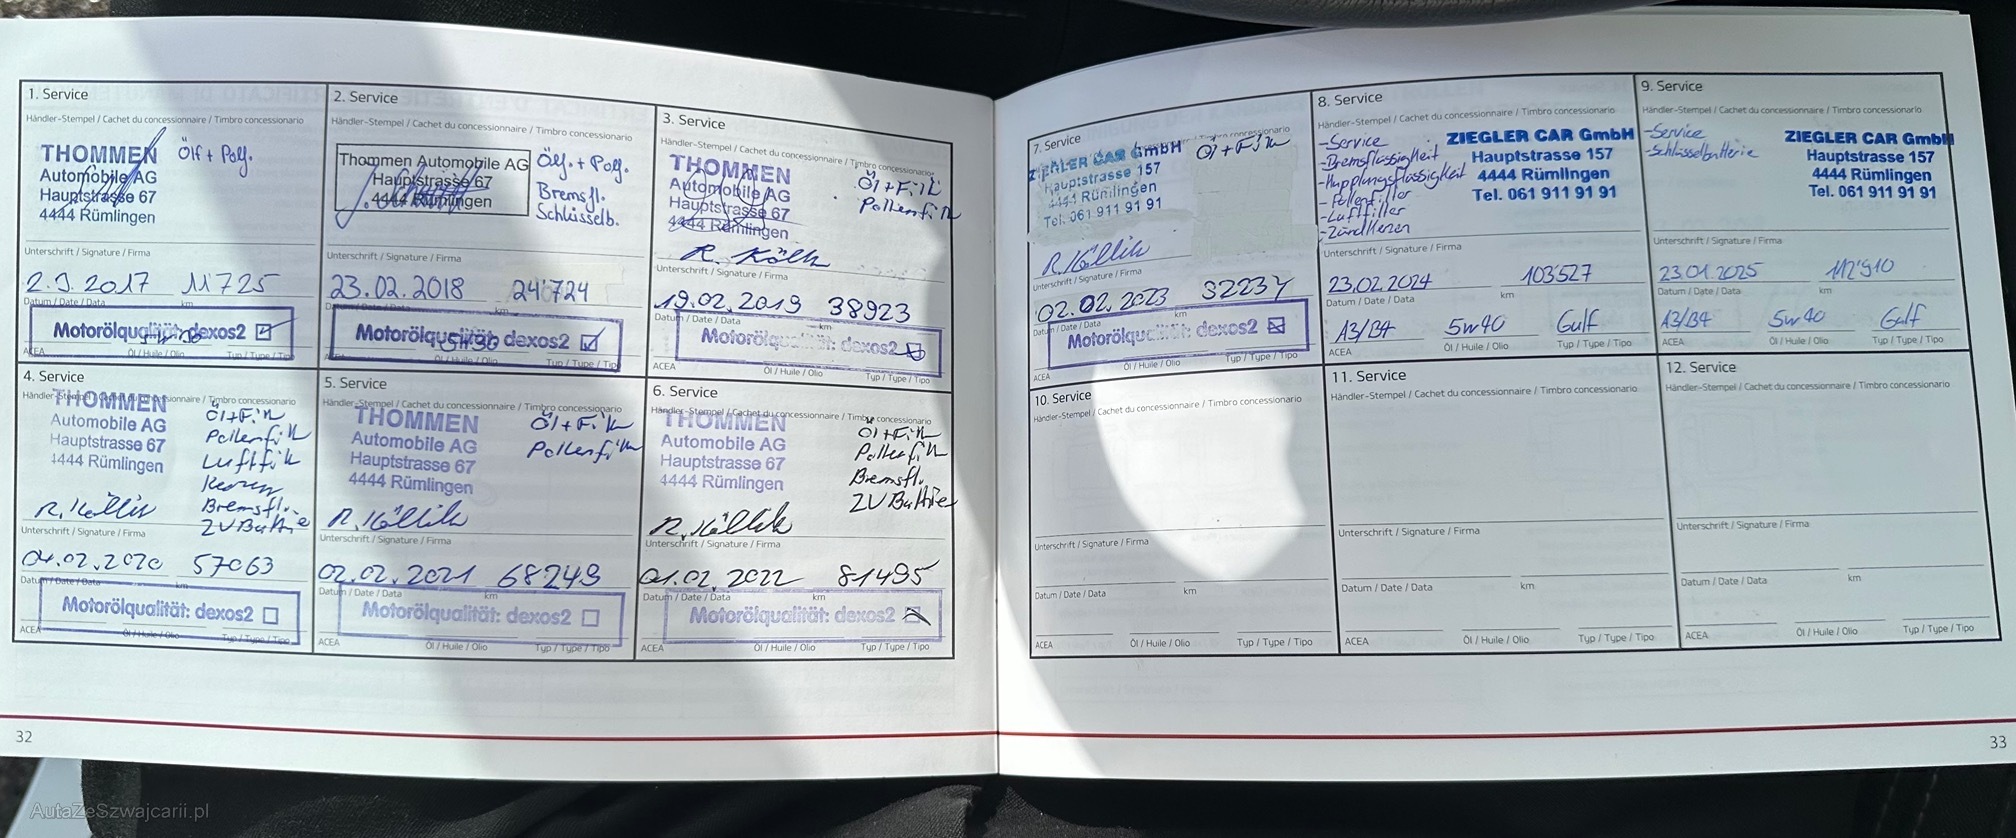 1. Service
Händler-Stempel / Cachet du concessionnaire / Timbro concessionario
THOMMEN
Automobile AG
Hauptstrasse 67
4444 Rümlingen
Ölf + Polf.
Unterschrift / Signature / Firma
2.9.2017 11725
Datum / Date / Data km
Motorölqualität: dexos2
ACEA Öl / Huile / Olio Typ / Type / Tipo
2. Service
Händler-Stempel / Cachet du concessionnaire / Timbro concessionario
Thommen Automobile AG
Hauptstrasse 67
4444 Rümlingen
Ölf. + Polf.
Bremsfl.
Schlüsselb.
Unterschrift / Signature / Firma
23.02.2018 24'724
Datum / Date / Data km
Motorölqualität: dexos2
Öl / Huile / Olio Typ / Type / Tipo
3. Service
Händler-Stempel / Cachet du concessionnaire / Timbro concessionario
THOMMEN
Automobile AG
Hauptstrasse 67
4444 Rümlingen
Öl+Filt
Pollenfilt
Unterschrift / Signature / Firma
19.02.2019 38923
Datum / Date / Data km
Motorölqualität: dexos2
ACEA Öl / Huile / Olio Typ / Type / Tipo
4. Service
Händler-Stempel / Cachet du concessionnaire / Timbro concessionario
THOMMEN
Automobile AG
Hauptstrasse 67
4444 Rümlingen
Öl+Filt
Pollenfilt
Luftfilt
Kerzen
Bremsfl.
ZV Batterie
R. Köllik
Unterschrift / Signature / Firma
04.02.2020 57063
Datum / Date / Data km
Motorölqualität: dexos2
ACEA Öl / Huile / Olio Typ / Type / Tipo
5. Service
Händler-Stempel / Cachet du concessionnaire / Timbro concessionario
THOMMEN
Automobile AG
Hauptstrasse 67
4444 Rümlingen
Öl+Filt
Pollenfilt
R. Köllik
Unterschrift / Signature / Firma
02.02.2021 68249
Datum / Date / Data km
Motorölqualität: dexos2
ACEA Öl / Huile / Olio Typ / Type / Tipo
6. Service
Händler-Stempel / Cachet du concessionnaire / Timbro concessionario
THOMMEN
Automobile AG
Hauptstrasse 67
4444 Rümlingen
Öl+Filt
Pollenfilt
Bremsfl.
ZV Batterie
R. Köllik
Unterschrift / Signature / Firma
01.02.2022 81495
Datum / Date / Data km
Motorölqualität: dexos2
ACEA Öl / Huile / Olio Typ / Type / Tipo
32
7. Service
Timbro concessionario
ZIEGLER CAR GmbH
Hauptstrasse 157
4444 Rümlingen
Tel. 061 911 91 91
Öl+Filt
R. Köllik
Unterschrift / Signature / Firma
02.02.2023
Datum / Date / Data km
Motorölqualität: dexos2
ACEA Öl / Huile / Olio Typ / Type / Tipo
8. Service
Händler-Stempel / Cachet du concessionnaire / Timbro concessionario
-Service
-Bremsflüssigkeit
-Kupplungsflüssigkeit
-Pollenfilter
-Luftfilter
-Zündkerzen
ZIEGLER CAR GmbH
Hauptstrasse 157
4444 Rümlingen
Tel. 061 911 91 91
Unterschrift / Signature / Firma
23.02.2024 103'527
Datum / Date / Data km
A3/B4 5w40 Gulf
ACEA Öl / Huile / Olio Typ / Type / Tipo
9. Service
Händler-Stempel / Cachet du concessionnaire / Timbro concessionario
-Service
-Schlüsselbatterie
ZIEGLER CAR GmbH
Hauptstrasse 157
4444 Rümlingen
Tel. 061 911 91 91
Unterschrift / Signature / Firma
23.01.2025 112'910
Datum / Date / Data km
A3/B4 5w40 Gulf
ACEA Öl / Huile / Olio Typ / Type / Tipo
10. Service
Händler-Stempel / Cachet du concessionnaire / Timbro concessionario
Unterschrift / Signature / Firma
Datum / Date / Data km
ACEA Öl / Huile / Olio Typ / Type / Tipo
11. Service
Händler-Stempel / Cachet du concessionnaire / Timbro concessionario
Unterschrift / Signature / Firma
Datum / Date / Data km
ACEA Öl / Huile / Olio Typ / Type / Tipo
12. Service
Händler-Stempel / Cachet du concessionnaire / Timbro concessionario
Unterschrift / Signature / Firma
Datum / Date / Data km
ACEA Öl / Huile / Olio Typ / Type / Tipo
33
AutaZeSzwajcarii.pl